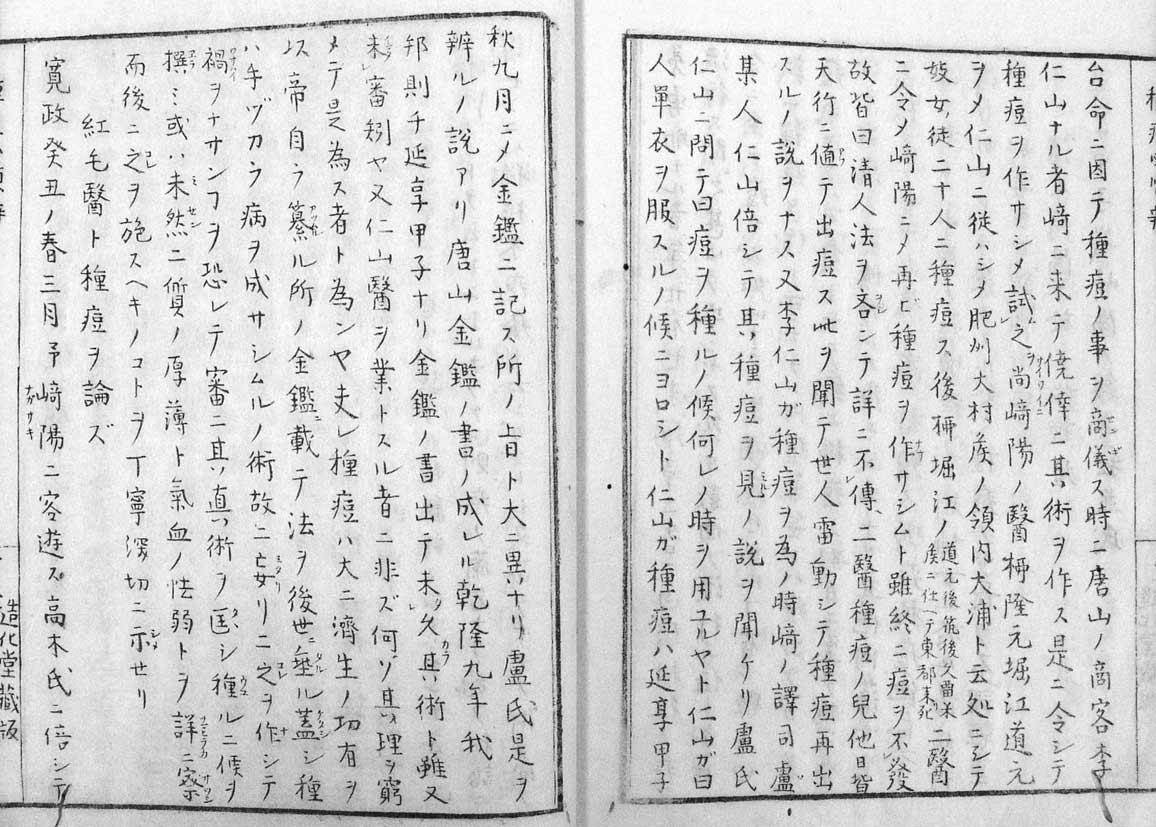 台命ニ因テ種痘ノ事ヲ商儀ス時ニ唐山ノ商客李
仁山ナル者﨑ニ来テ僥倖ニ其術ヲ作ス是ニ令シテ
種痘ヲ作サシメ試之尚﨑陽ノ醫柳隆元堀江道元
ヲメ仁山ニ従ハシメ肥州大村矦ノ領内大浦ト云処ニシテ
妓女徒二十人ニ種痘ス後柳堀江ノ道元後筑後久留米矦ニ仕ヘテ東都ニ死二醫
ニ令メ﨑陽ニメ再ビ種痘ヲ作サシムト雖終ニ痘ヲ不發
故皆曰清人法ヲ吝ンテ詳ニ不傳二醫種痘ノ兒他日皆
天行ニ値テ出痘ス此ヲ聞テ世人雷動シテ種痘再出
スルノ説ヲナス又李仁山ガ種痘ヲ為ノ時﨑ノ譯司盧
某人仁山倍シテ其種痘ヲ見ノ説ヲ聞ケリ盧氏
仁山ニ問テ曰痘ヲ種ルノ候何レノ時ヲ用ユルヤト仁山ガ曰
人單衣ヲ服スルノ候ニヨロシト仁山ガ種痘ハ延享甲子
秋九月ニメ金鑑ニ記ス所ノ旨ト大ニ異ナリ盧氏是ヲ
辨ルノ説アリ唐山金鑑ノ書ノ成レル乾隆九年我
邦則チ延享甲子ナリ金鑑ノ書出テ未久其術ト雖又
未審矧ヤ又仁山醫ヲ業トスル者ニ非ズ何ゾ其理ヲ窮
メデ是為ス者ト為ンヤ夫レ種痘ハ大ニ濟生ノ切有ヲ
以帝自ラ纂ル所ノ金鑑ニ載テ法ヲ後世ニ埀ル蓋シ種
ハ手ヅカラ病ヲ成サシムルノ術故ニ妄リニ之ヲ作シテ
禍ヲナサンヿヲ恐レテ審ニ其真術ヲ匡シ種ルニ候ヲ
撰ミ或ハ未然ニ質ノ厚薄ト氣血ノ怯弱トヲ詳ニ察
而後ニ之ヲ施スヘキノコトヲ丁寧深切ニ示セリ
紅毛醫ト種痘ヲ論ズ
寛政癸丑ノ春三月予﨑陽ニ客遊ス高木氏ニ倍シテ
造化堂藏版